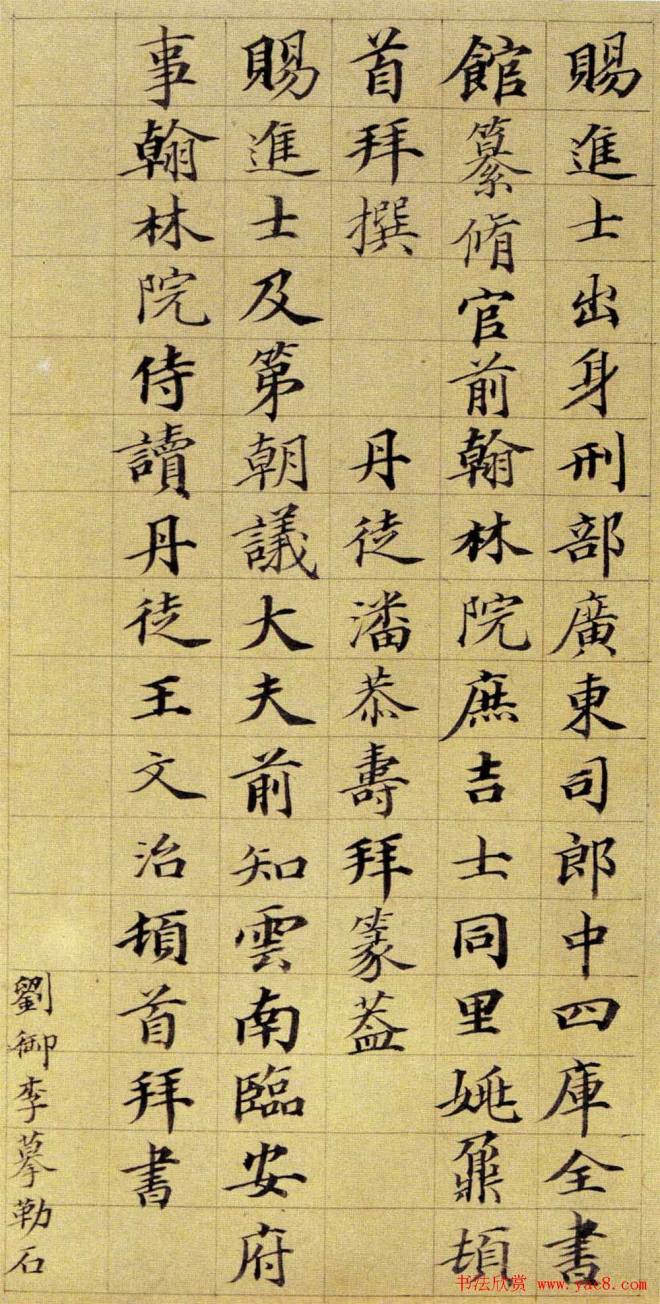 賜進士出身刑部廣東司郎中四庫全書
館纂脩官前翰林院庶吉士同里姚鼐頓
首拜撰 丹徒潘恭壽拜篆蓋
賜進士及第朝議大夫前知雲南臨安府
事翰林院侍讀丹徒王文治頓首拜書
劉御李摹勒石
书法欣赏 www.yac8.com